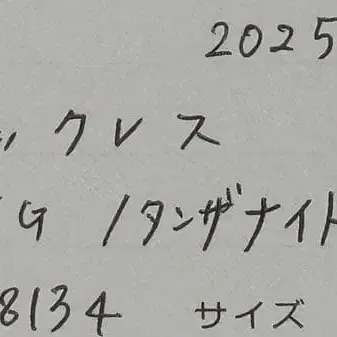 2025
クレス
G /タンザナイト
8134 サイズ